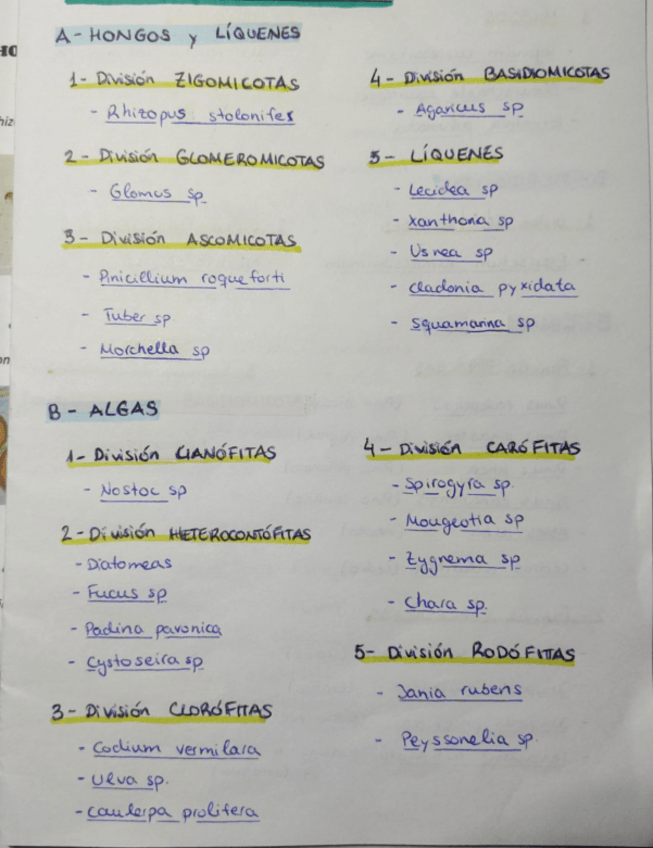 A - HONGOS y LÍQUENES
1 - División ZIGOMICOTAS
- Rhizopus stolonifer
2 - División GLOMEROMICOTAS
- Glomus sp.
3 - División ASCOMICOTAS
- Pinicillium roqueforti
- Tuber sp
- Morchella sp
4 - División BASIDIOMICOTAS
- Agaricus sp
5 - LÍQUENES
- Lecidea sp
- Xanthona sp
- Usnea sp
- Cladonia pyxidata
- Squamarina sp
B - ALGAS
1 - División CIANÓFITAS
- Nostoc sp
2 - División HETEROCONTÓFITAS
- Diatomeas
- Fucus sp
- Padina pavonica
- Cystoseira sp
3 - División CLORÓFITAS
- Codium vermilara
- Ulva sp.
- Caulerpa prolifera
4 - División CARÓFITAS
- Spirogyra sp.
- Mougeotia sp
- Zygnema sp
- Chara sp.
5 - División RODÓFITAS
- Jania rubens
- Peyssonelia sp.